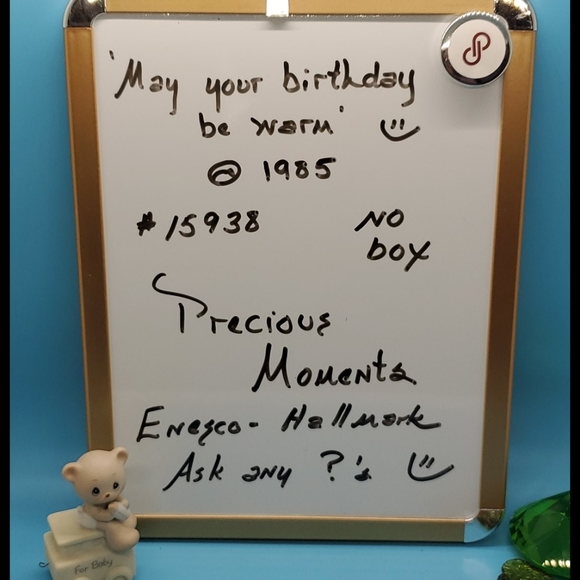 'May your birthday
be warm'
© 1985
#15938
NO
box
Precious
Moments
Enesco - Hallmark
Ask any ?'s
For Baby